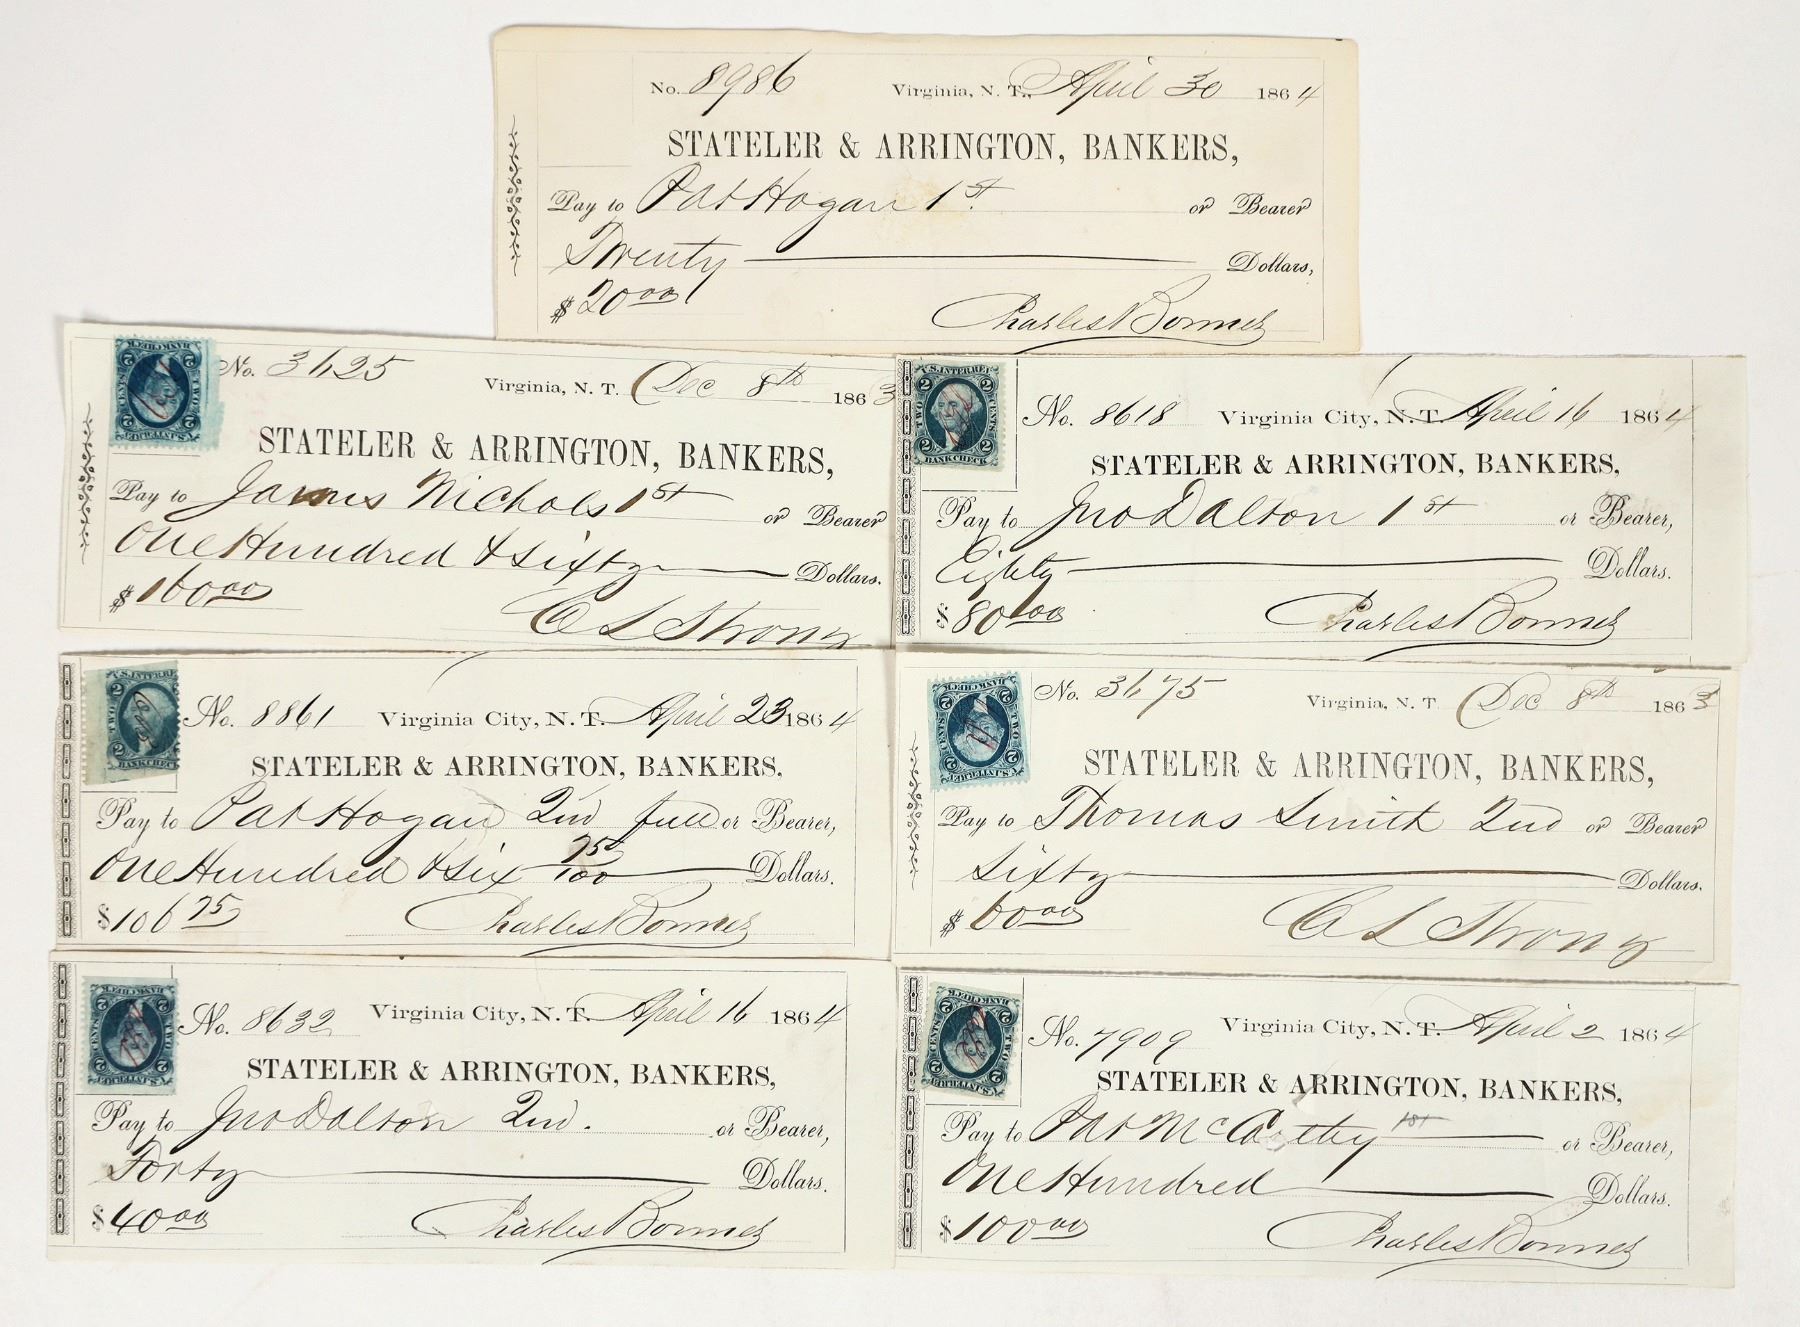 No. 8986 Virginia, N. T., April 30 1864
STATELER & ARRINGTON, BANKERS,
Pay to Pat Hogan 1st. or Bearer
Twenty Dollars,
$20.00
Charles Bonner
2 BANK CHECK 2
TWO CENTS
U.S. INTER. REV.
No. 3625 Virginia, N. T. Dec 8th 1863
STATELER & ARRINGTON, BANKERS,
Pay to James Nichols 1st or Bearer
One Hundred & Sixty Dollars.
$160.00
C L Strong
U.S. INTER. REV.
2 2
TWO CENTS
2 2
BANK CHECK
No. 8618 Virginia City, N. T. April 16 1864
STATELER & ARRINGTON, BANKERS,
Pay to Jno Dalton 1st or Bearer,
Eighty Dollars.
$80.00
Charles Bonner
U.S. INTER. REV.
2
TWO
2
BANK CHECK
No. 8861 Virginia City, N. T. April 23 1864
STATELER & ARRINGTON, BANKERS,
Pay to Pat Hogan 2nd full or Bearer,
One Hundred & Six 75/100 Dollars.
$106 75
Charles Bonner
BANK CHECK
2 2
TWO CENTS
2 2
U.S. INTER. REV.
No. 3675 Virginia, N. T. Dec 8th 1863
STATELER & ARRINGTON, BANKERS,
Pay to Thomas Smith 2nd or Bearer
Sixty Dollars.
$60.00
C L Strong
BANK CHECK
2 2
TWO CENTS
2 2
U.S. INTER. REV.
No. 8632 Virginia City, N. T. April 16 1864
STATELER & ARRINGTON, BANKERS,
Pay to Jno Dalton 2nd. or Bearer,
Forty Dollars.
$40.00
Charles Bonner
BANK CHECK
2 2
TWO CENTS
2 2
U.S. INTER. REV.
No. 7909 Virginia City, N. T. April 2 1864
STATELER & ARRINGTON, BANKERS,
Pay to Pat McCarthy 1st or Bearer,
One Hundred Dollars.
$100.00
Charles Bonner